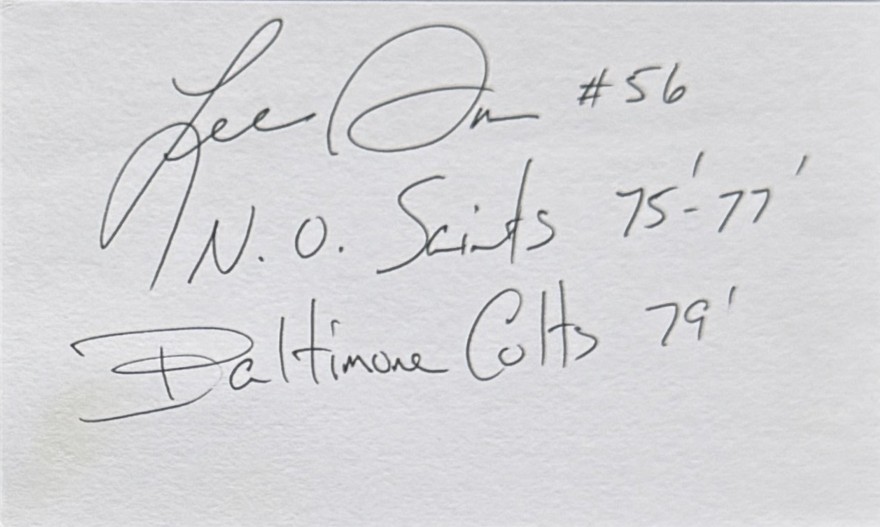 Lee #56
N.O. Saints 75'-77'
Baltimore Colts 79'